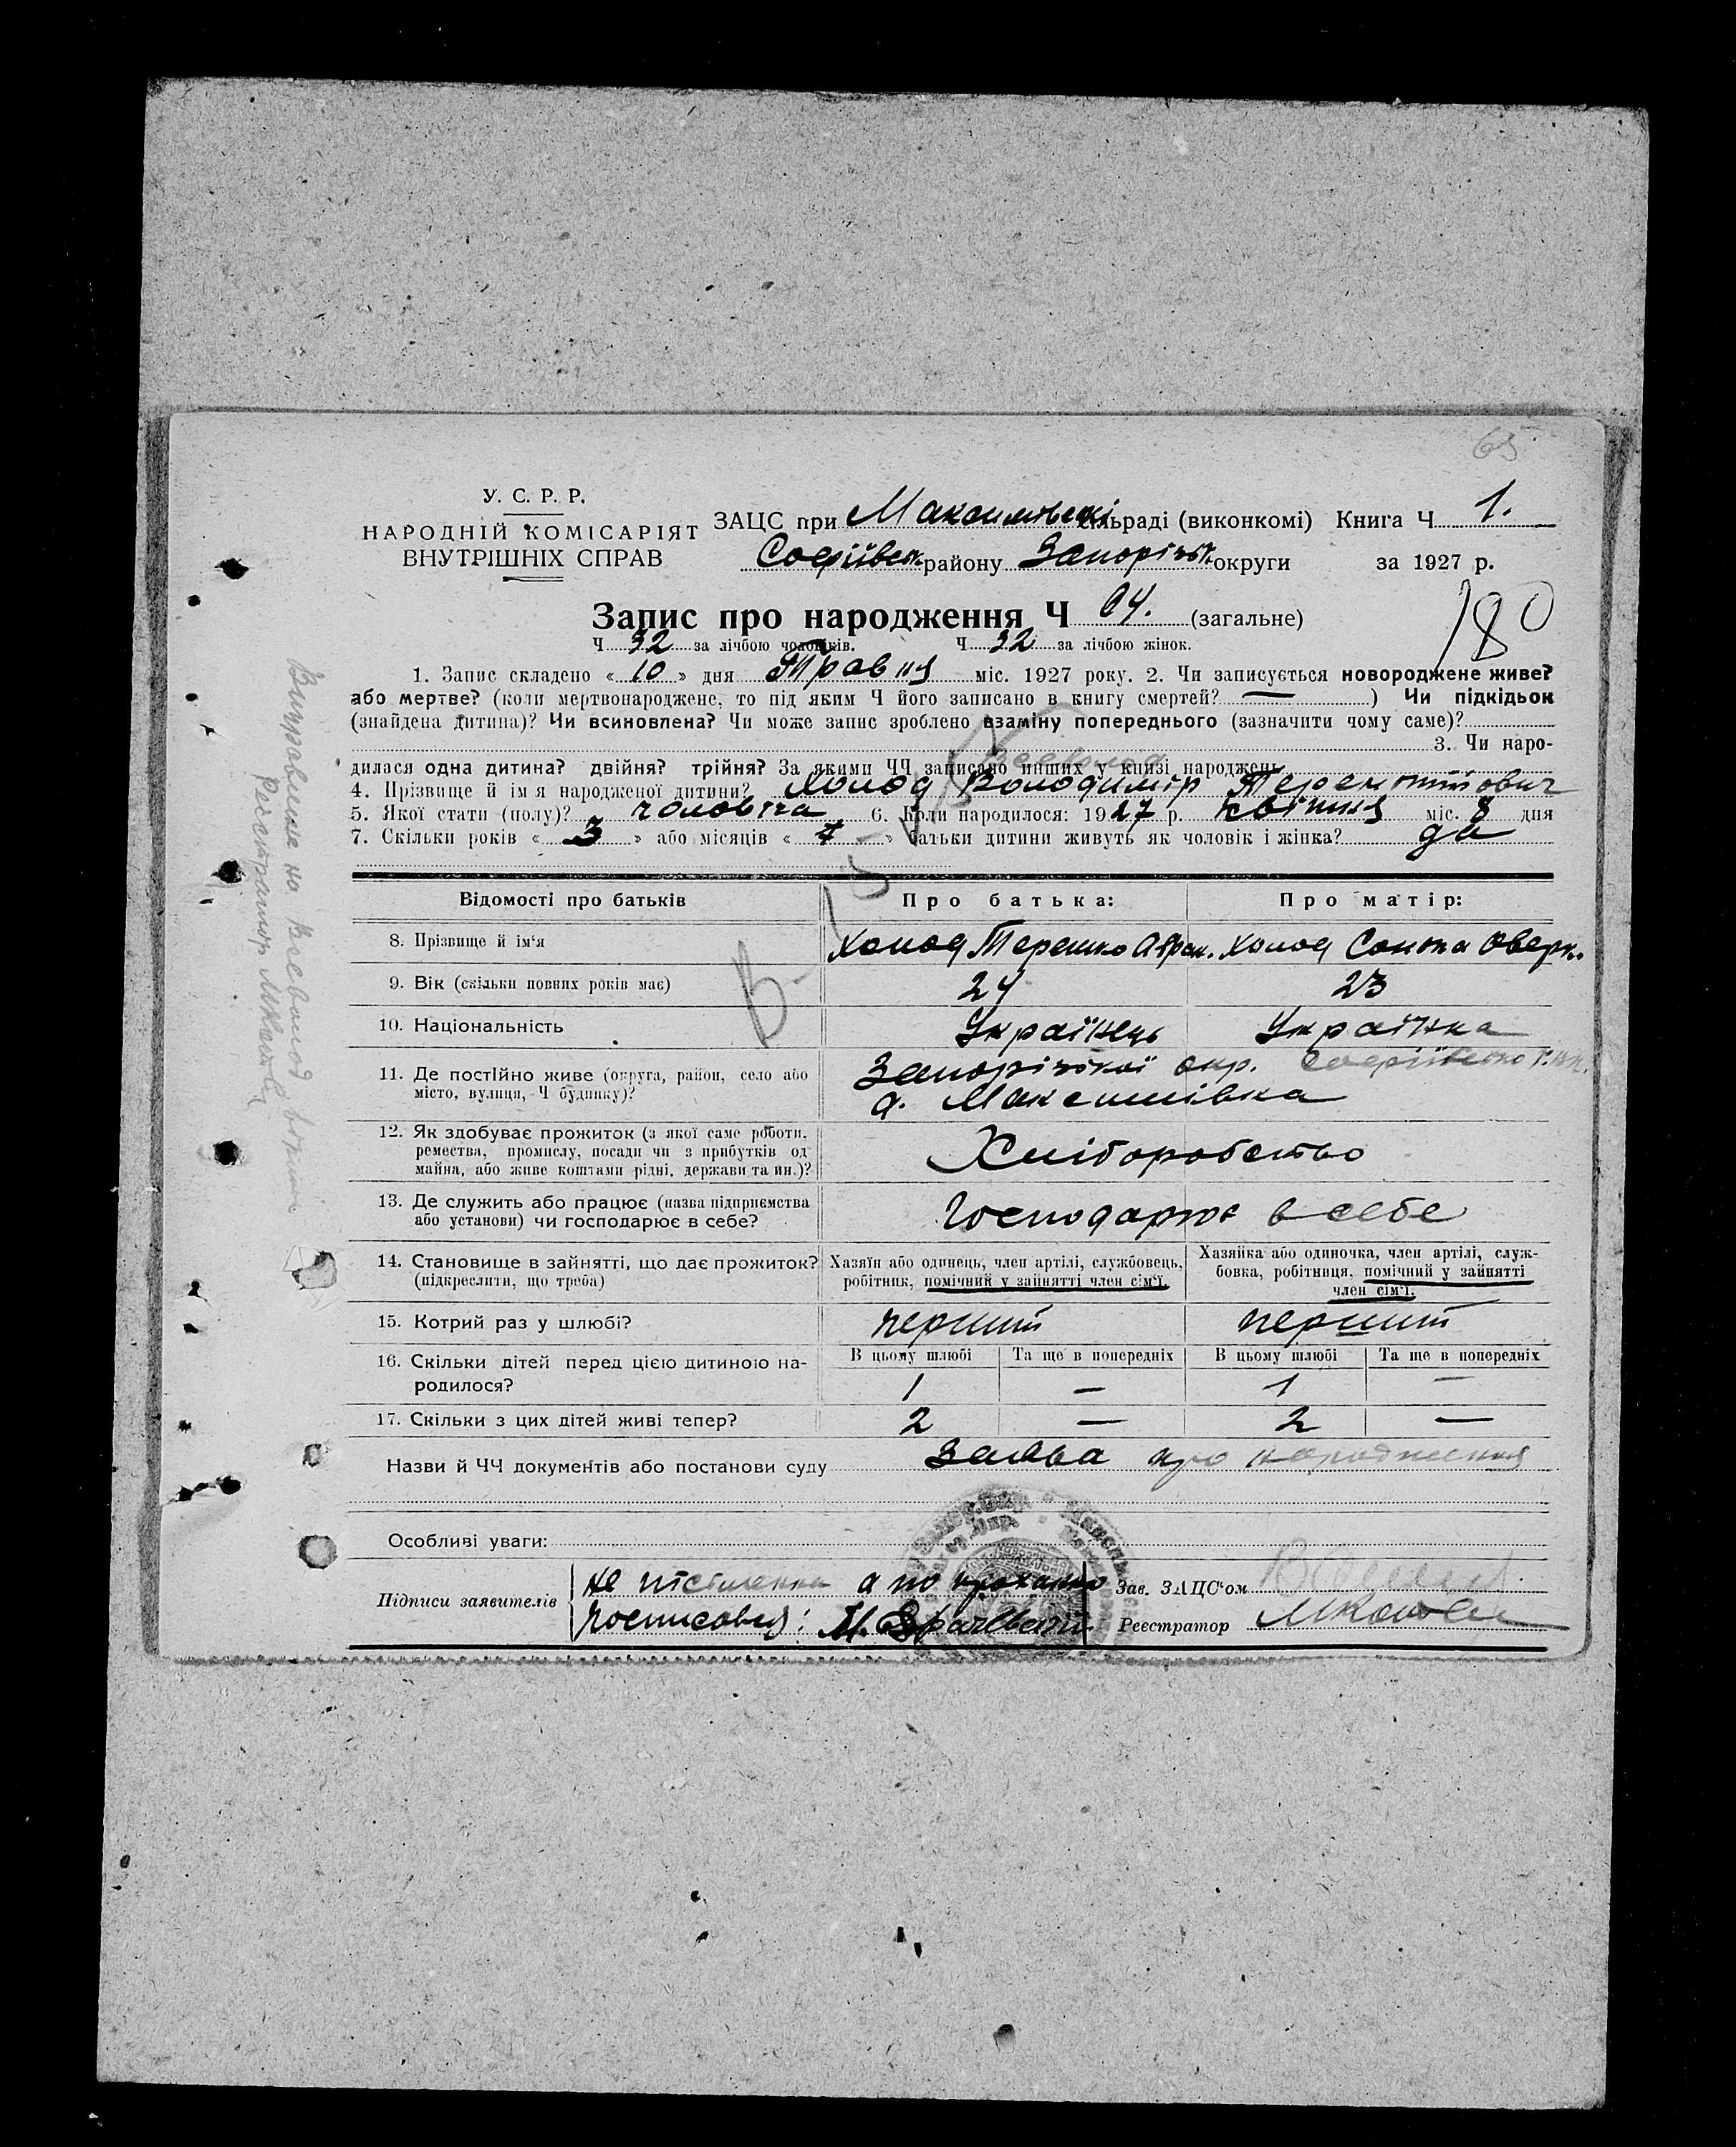 65
У. С. Р. Р.
НАРОДНІЙ КОМІСАРІЯТ
ВНУТРІШНІХ СПРАВ
ЗАЦС при Максимівскі сільраді (виконкомі) Книга Ч 1.
Софіївськ району Запорізьк. округи за 1927 р.
Запис про народження Ч 64. (загальне)
180
Ч 32 за лічбою чоловіків. Ч 32 за лічбою жінок.
1. Запис складено « 10 » дня Травня міс. 1927 року. 2. Чи записується новороджене живе?
або мертве? (коли мертвонароджене, то під яким Ч його записано в книгу смертей? — ) Чи підкідьок
(знайдена дитина)? Чи всиновлена? Чи може запис зроблено взаміну попереднього (зазначити чому саме)?
3. Чи наро-
дилася одна дитина? двійня? трійня? За якими ЧЧ записано инших у книзі народжень
Всеволод
4. Прізвище й ім'я народженої дитини? Холод Володимір Терентійович
5. Якої стати (полу)? чоловіча 6. Коли народилося: 1927 р. квітня міс. 8 дня
7. Скільки років « 3 » або місяців « 7 » батьки дитини живуть як чоловік і жінка? да
Відомості про батьків Про батька: Про матір:
8. Прізвище й ім'я Холод Терешко Абрам. Холод Сонька Оверк.
9. Вік (скільки повних років має) 24 23
10. Національність Українець Українка
11. Де постійно живе (округа, район, село або
місто, вулиця, Ч будинку)?
Запорізької окр. Софіївського р.
с. Максимівка
12. Як здобуває прожиток (з якої саме роботи,
ремества, промислу, посади чи з прибутків од
майна, або живе коштами рідні, держави та ин.)?
Хліборобство
13. Де служить або працює (назва підприємства
або установи) чи господарює в себе?
Господарює в себе
14. Становище в зайнятті, що дає прожиток?
(підкреслити, що треба)
Хазяїн або одинець, член артілі, службовець,
робітник, помічний у зайнятті член сім'ї.
Хазяйка або одиночка, член артілі, служ-
бовка, робітниця, помічний у зайнятті
член сім'ї.
15. Котрий раз у шлюбі? перший перший
16. Скільки дітей перед цією дитиною на-
родилося?
В цьому шлюбі Та ще в попередніх В цьому шлюбі Та ще в попередніх
1 — 1 —
17. Скільки з цих дітей живі тепер? 2 — 2 —
Назви й ЧЧ документів або постанови суду Заява про народження
Особливі уваги:
Підписи заявителів не písьменна а по проханню
росписовся:
Зав. ЗАЦС'ом
Реєстратор
Виправлення на Всеволод
Реєстратор